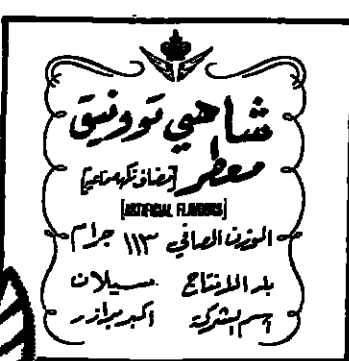 شاهي توونيق
معطر [مضاف نكهة صناعية]
[ARTIFICIAL FLAVOURS]
الوزن الصافي ١١٣ جرام
بلد الانتاج سيلان
اسم الشركة اكبر برازر